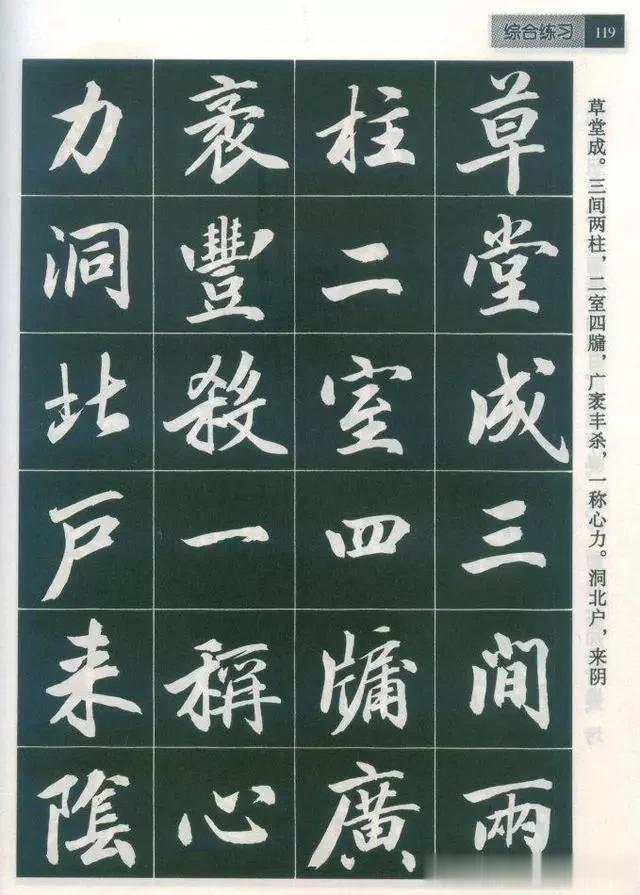 综合练习 119
草堂成。三间两柱，二室四牖，广袤丰杀，一称心力。洞北户，来阴
草堂成三間兩
柱二室四牖廣
袤豐殺一稱心
力洞北戶来陰